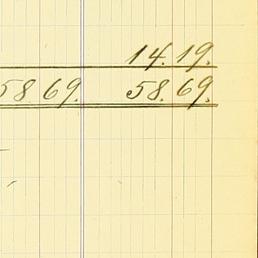 14.19.
58 69. 58.69.